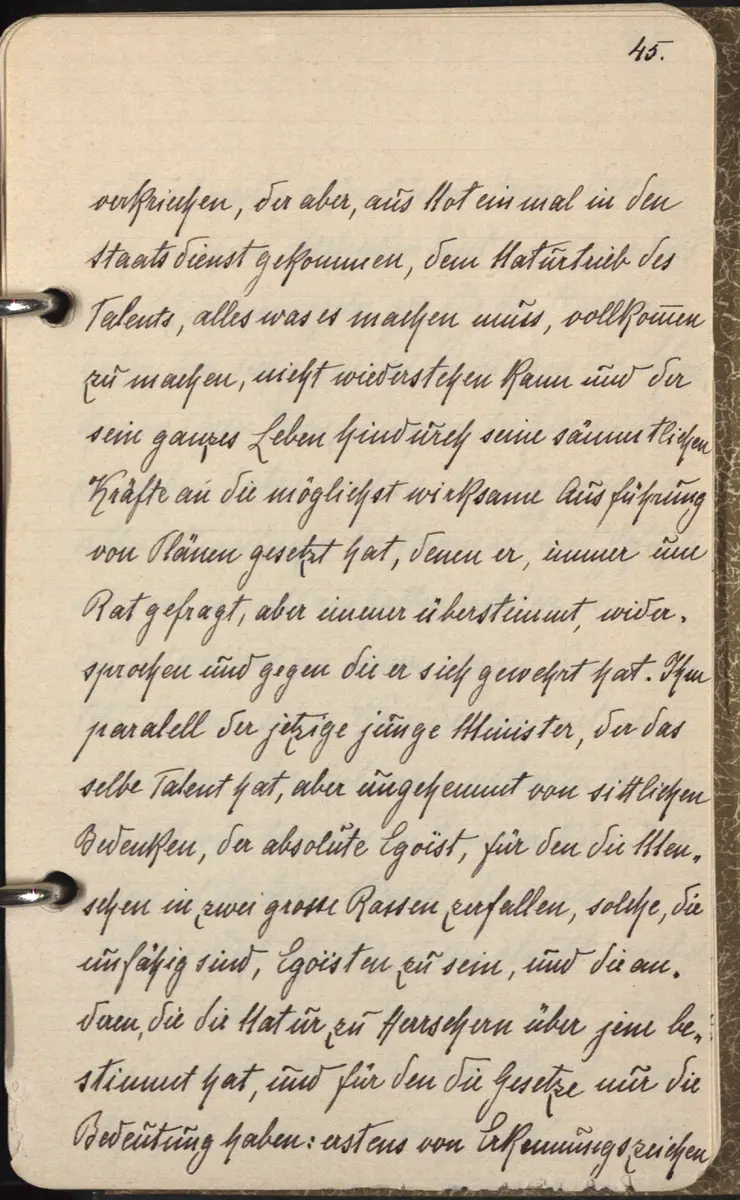 45.
verkriechen, der aber, aus Not einmal in den
Staatsdienst gekommen, dem Naturtrieb des
Talents, alles was es machen muss, vollkom̄en
zu machen, nicht wiederstehen kann und der
sein ganzes Leben hindurch seine sämmtlichen
Kräfte an die möglichst wirksame Ausführung
von Plänen gesetzt hat, denen er, immer um
Rat gefragt, aber immer überstimmt, wider-
sprochen und gegen die er sich gewehrt hat. Ihm
paralell der jetzige junge Minister, der das
selbe Talent hat, aber ungehemmt von sittlichen
Bedenken, der absolute Egoïst, für den die Men-
schen in zwei grosse Rassen zerfallen, solche, die
unfähig sind, Egoïsten zu sein, und die an-
deren, die die Natur zu Herrschern über jene be-
stimmt hat, und für den die Gesetze nur die
Bedeutung haben: erstens von Erkennungszeichen